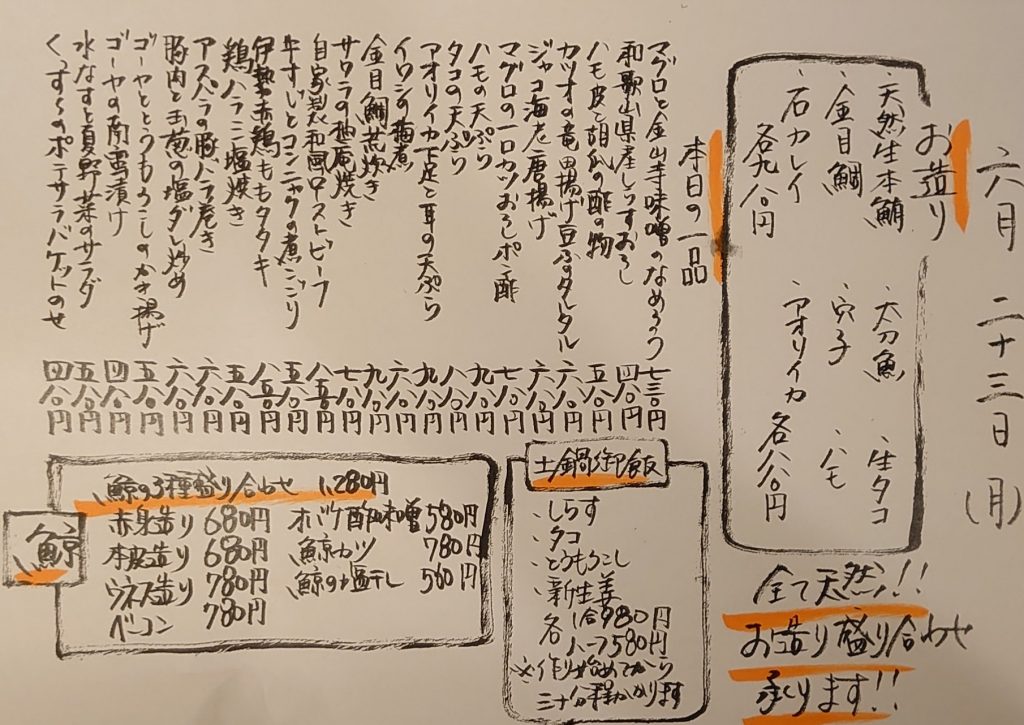 六月二十三日(月)
お造り
・天然生本鮪
・金目鯛
・石カレイ
各九八〇円
・太刀魚
・穴子
・アオリイカ
・生タコ
・ハモ
各八八〇円
全て天然!!
お造り盛り合わせ
承ります!!
本日の一品
マグロと金山寺味噌のなめろう 七三〇円
和歌山県産しらすおろし 四八〇円
ハモ皮と胡瓜の酢の物 五八〇円
カツオの竜田揚げ豆ふのタルタル 六八〇円
ジャコ海老唐揚げ 六八〇円
マグロの一口カツおろしポン酢 七八〇円
ハモの天ぷら 九八〇円
タコの天ぷら 八八〇円
アオリイカ下足と耳の天ぷら 九八〇円
イワシの梅煮 六八〇円
金目鯛荒炊き 九八〇円
サワラの柚庵焼き 七八〇円
自家製和風ローストビーフ 八五〇円
牛すじとコンニャクの煮こごり 五八〇円
伊勢赤鶏ももタタキ 八五〇円
鶏ハラミ塩焼き 五八〇円
アスパラの豚バラ巻き 六八〇円
豚肉と玉葱の塩ダレ炒め 六八〇円
ゴーヤととうもろこしのかき揚げ 五八〇円
ゴーヤの南蛮漬け 四八〇円
水なすと夏野菜のサラダ 五八〇円
くっすぅのポテサラバケットのせ 四八〇円
土鍋御飯
・しらす
・タコ
・とうもろこし
・新生姜
各 1合980円
ハーフ580円
※作り始めてから
三十分程かかります
鯨
鯨の3種盛り合わせ 1,280円
赤身造り 680円
本皮造り 680円
ウネス造り 780円
ベーコン 780円
オバケ酢味噌 580円
鯨カツ 780円
鯨の塩干し 560円